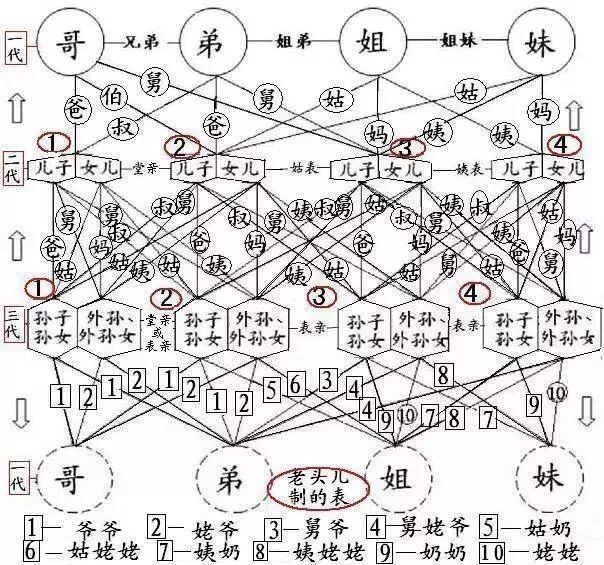 一代 哥 兄弟 弟 姐弟 姐 姐妹 妹
爸 伯 舅 舅 姑
叔 爸 妈 姨 妈 姨
① ② ③ ④
二代 儿子 女儿 堂亲 儿子 女儿 姑表 儿子 女儿 姨表 儿子 女儿
舅 叔 舅 叔 舅 姨 叔 姑 叔 姨 叔
爸 妈 叔 爸 妈 姨 爸 姨 姑 妈
姑 姑 姨 姑 姨 姑 舅 舅
① ② ③ ④
三代 孙子孙女 外孙、外孙女 堂亲或表亲 孙子孙女 外孙、外孙女 表亲 孙子孙女 外孙、外孙女 表亲 孙子孙女 外孙、外孙女
1 2 1 2 1 1 2 5 6 3 4 4 9 10 8 7 8 7 9 10
一代 哥 弟 老头儿制的表 姐 妹
1—爷爷 2—姥爷 3—舅爷 4—舅姥爷 5—姑奶
6—姑姥姥 7—姨奶 8—姨姥姥 9—奶奶 10—姥姥